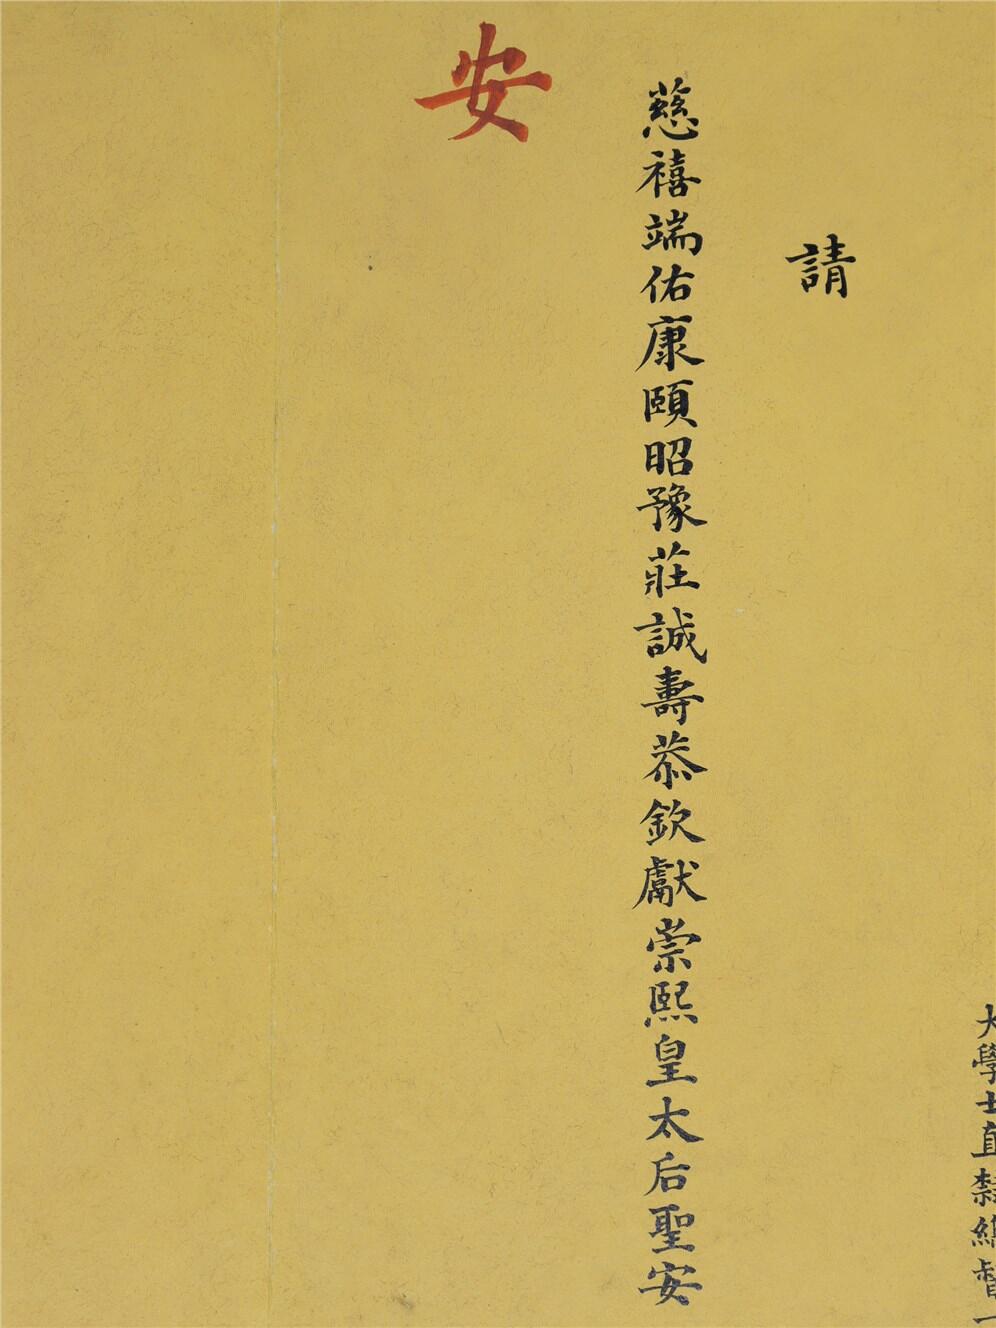 大學士直隸總督一
請
慈禧端佑康頤昭豫莊誠壽恭欽獻崇熙皇太后聖安
安